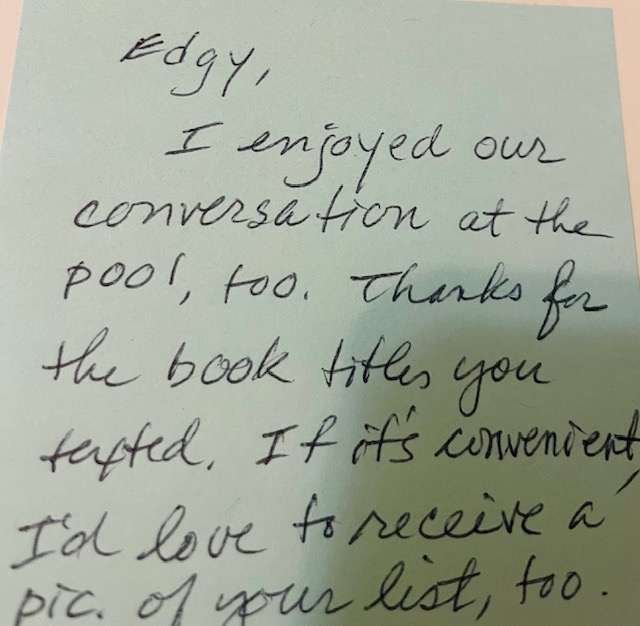 Edgy,
I enjoyed our
conversation at the
pool, too. Thanks for
the book titles you
texted. If it's convenient,
I'd love to receive a
pic. of your list, too.